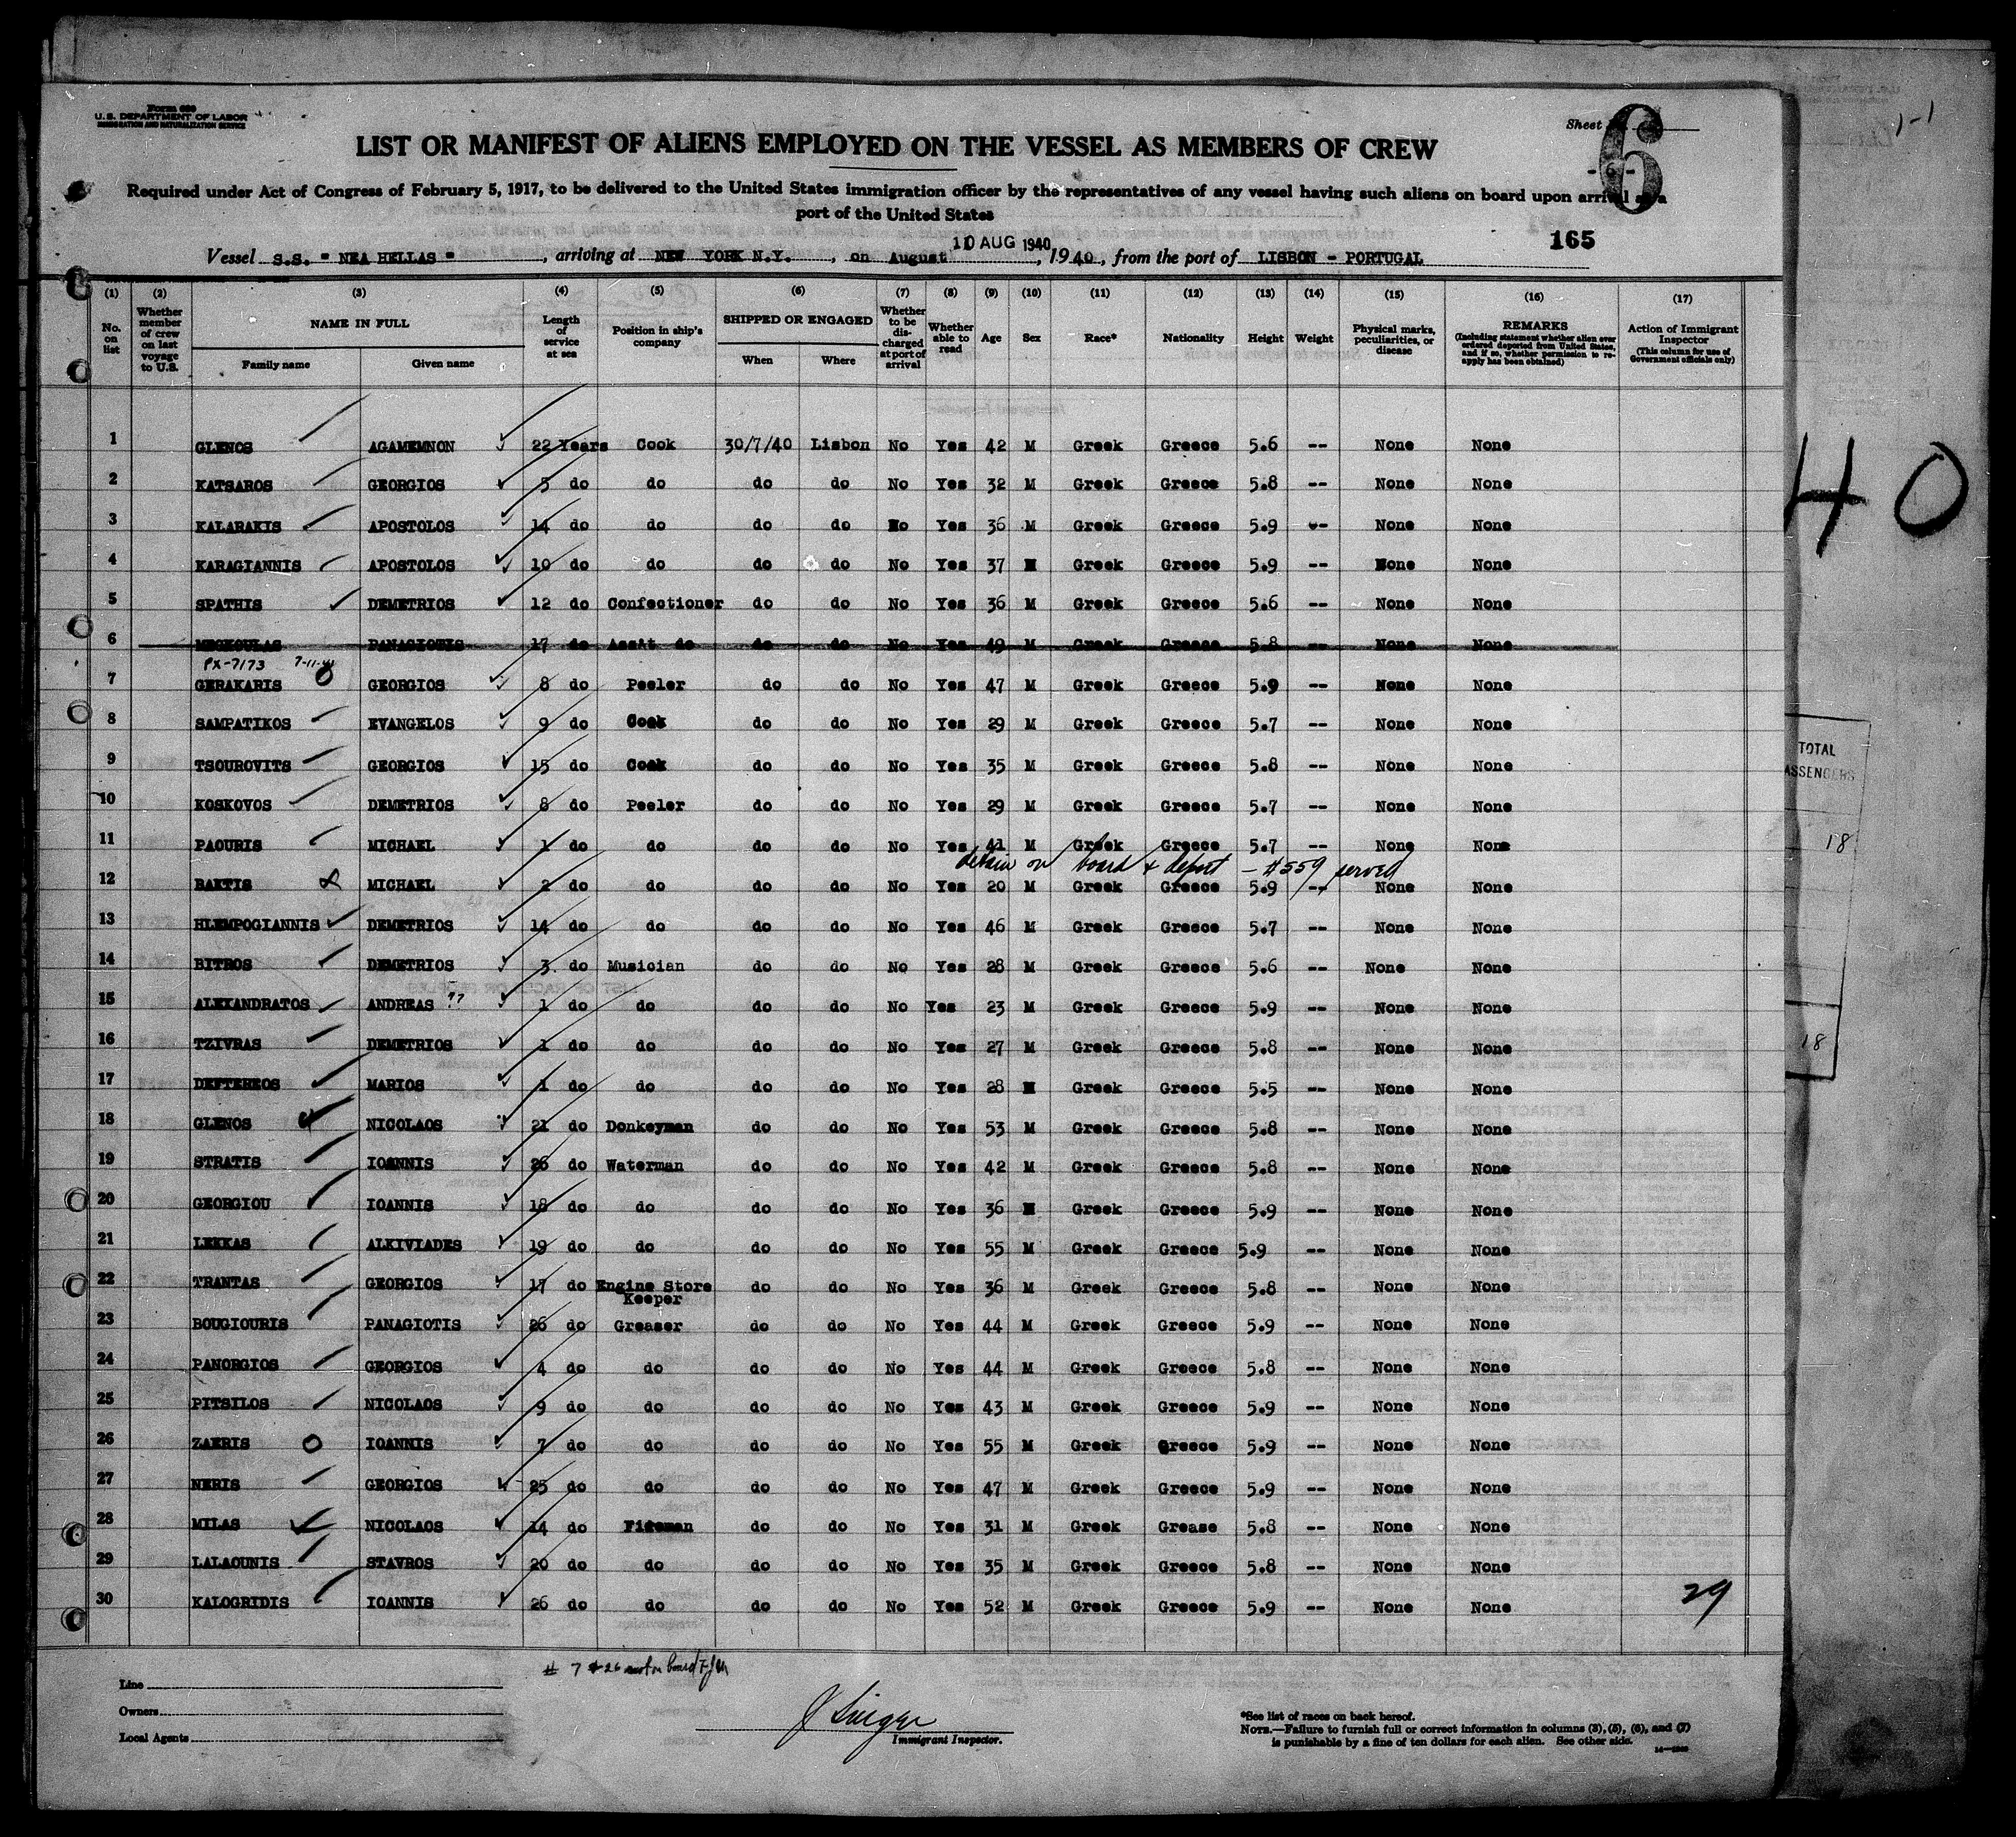 Form 680
U. S. DEPARTMENT OF LABOR
IMMIGRATION AND NATURALIZATION SERVICE
Sheet
6
- 6 -
1-1
LIST OR MANIFEST OF ALIENS EMPLOYED ON THE VESSEL AS MEMBERS OF CREW
Required under Act of Congress of February 5, 1917, to be delivered to the United States immigration officer by the representatives of any vessel having such aliens on board upon arrival at a
port of the United States
165
10 AUG 1940
Vessel S.S. " NEA HELLAS " , arriving at NEW YORK N.Y. , on August , 1940 , from the port of LISBON - PORTUGAL
(1) (2) (3) (4) (5) (6) (7) (8) (9) (10) (11) (12) (13) (14) (15) (16) (17)
No. on list Whether member of crew on last voyage to U.S. NAME IN FULL Family name Given name Length of service at sea Position in ship's company SHIPPED OR ENGAGED When Where Whether to be discharged at port of arrival Whether able to read Age Sex Race* Nationality Height Weight Physical marks, peculiarities, or disease REMARKS (Including statement whether alien ever ordered deported from United States, and if so, whether permission to reapply has been obtained) Action of Immigrant Inspector (This column for use of Government officials only)
1 GLENOS AGAMEMNON 22 Years Cook 30/7/40 Lisbon No Yes 42 M Greek Greece 5.6 -- None None
2 KATSAROS GEORGIOS 5 do do do do No Yes 32 M Greek Greece 5.8 -- None None
3 KALARAKIS APOSTOLOS 14 do do do do No Yes 36 M Greek Greece 5.9 -- None None
4 KARAGIANNIS APOSTOLOS 10 do do do do No Yes 37 M Greek Greece 5.9 -- None None
5 SPATHIS DEMETRIOS 12 do Confectioner do do No Yes 36 M Greek Greece 5.6 -- None None
6 MEGKOULAS PANAGIOTIS 17 do Assit do do do No Yes 49 M Greek Greece 5.8 -- None None
PX-7173 7-11-41
7 GERAKARIS GEORGIOS 8 do Peeler do do No Yes 47 M Greek Greece 5.9 -- None None
8 SAMPATIKOS EVANGELOS 9 do Cook do do No Yes 29 M Greek Greece 5.7 -- None None
9 TSOUROVITS GEORGIOS 15 do Cook do do No Yes 35 M Greek Greece 5.8 -- None None
10 KOSKOVOS DEMETRIOS 8 do Peeler do do No Yes 29 M Greek Greece 5.7 -- None None
11 PAOURIS MICHAEL 1 do do do do No Yes 41 M Greek Greece 5.7 -- None None
detain on board & deport - #559 served
12 BAKTIS MICHAEL 2 do do do do No Yes 20 M Greek Greece 5.9 -- None None
13 HLEMPOGIANNIS DEMETRIOS 14 do do do do No Yes 46 M Greek Greece 5.7 -- None None
14 BITROS DEMETRIOS 3 do Musician do do No Yes 28 M Greek Greece 5.6 -- None None
15 ALEXANDRATOS ANDREAS 1 do do do do No Yes 23 M Greek Greece 5.9 -- None None
16 TZIVRAS DEMETRIOS 1 do do do do No Yes 27 M Greek Greece 5.8 -- None None
17 DEFTEREOS MARIOS 1 do do do do No Yes 28 M Greek Greece 5.5 -- None None
18 GLENOS NICOLAOS 21 do Donkeyman do do No Yes 53 M Greek Greece 5.8 -- None None
19 STRATIS IOANNIS 26 do Waterman do do No Yes 42 M Greek Greece 5.8 -- None None
20 GEORGIOU IOANNIS 18 do do do do No Yes 36 M Greek Greece 5.9 -- None None
21 LEKKAS ALKIVIADES 19 do do do do No Yes 55 M Greek Greece 5.9 -- None None
22 TRANTAS GEORGIOS 17 do Engine Store Keeper do do No Yes 36 M Greek Greece 5.8 -- None None
23 BOUGIOURIS PANAGIOTIS 26 do Greaser do do No Yes 44 M Greek Greece 5.9 -- None None
24 PANORGIOS GEORGIOS 4 do do do do No Yes 44 M Greek Greece 5.8 -- None None
25 PITSILOS NICOLAOS 9 do do do do No Yes 43 M Greek Greece 5.9 -- None None
26 ZAERIS IOANNIS 7 do do do do No Yes 55 M Greek Greece 5.9 -- None None
27 NERIS GEORGIOS 25 do do do do No Yes 47 M Greek Greece 5.9 -- None None
28 MILAS NICOLAOS 14 do Fireman do do No Yes 31 M Greek Grease 5.8 -- None None
29 LALAOUNIS STAVROS 20 do do do do No Yes 35 M Greek Greece 5.8 -- None None
30 KALOGRIDIS IOANNIS 26 do do do do No Yes 52 M Greek Greece 5.9 -- None None
29
40
TOTAL
PASSENGERS
18
18
# 7 & 26 not on board
Line
Owners
Local Agents
Immigrant Inspector.
*See list of races on back hereof.
NOTE.—Failure to furnish full or correct information in columns (3), (5), (6), and (7)
is punishable by a fine of ten dollars for each alien. See other side.